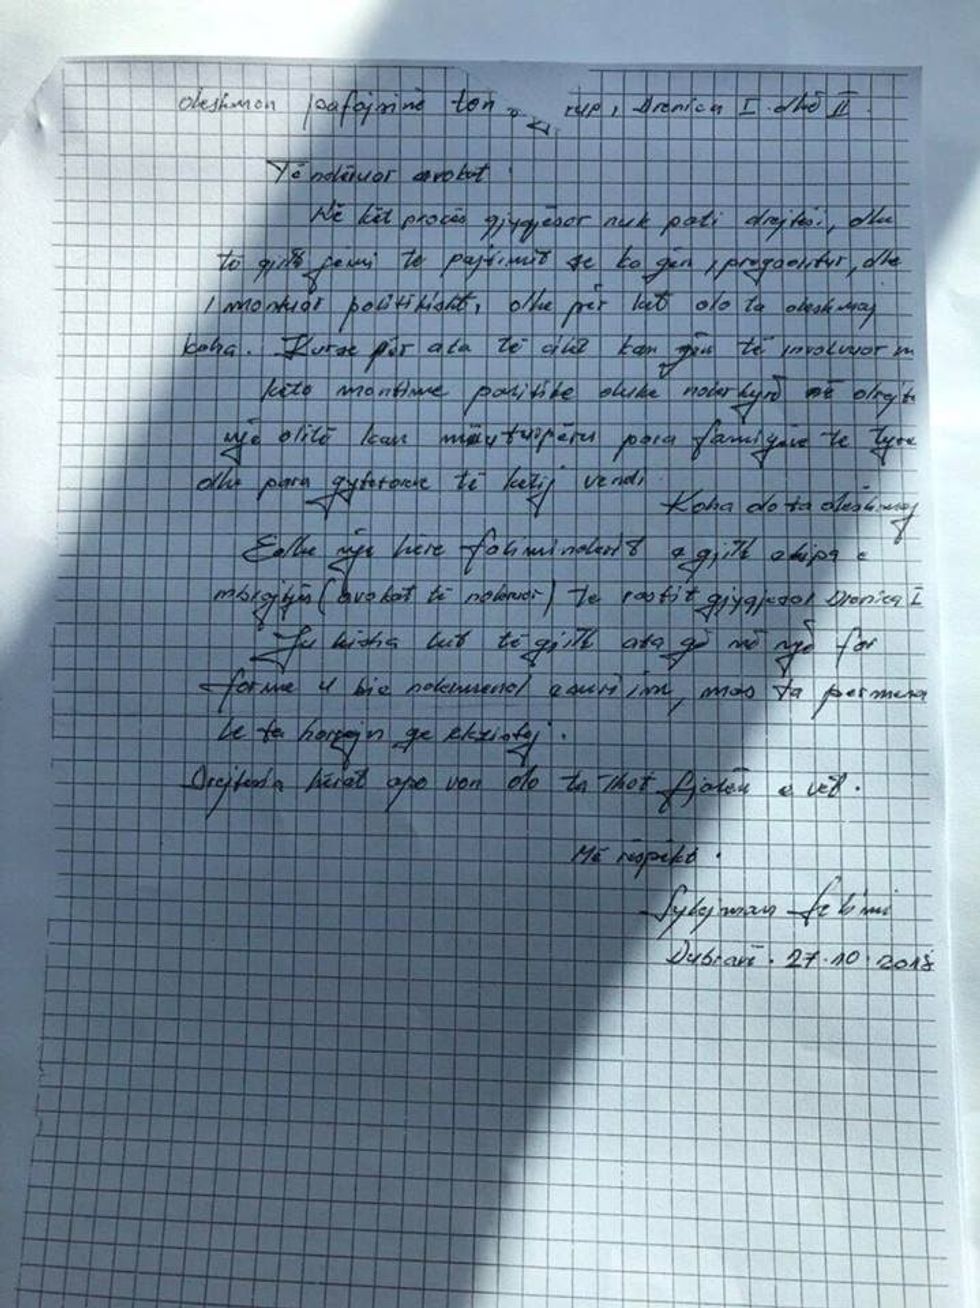 dëshmon pafajsinë ton rup, Drenica I dhe II.
Të nderuar avokat
Në kët proces gjyqësor nuk pati drejtësi, dhe
të gjith jemi të pajtimit se ka qën i pregaditur, dhe
i montuar politikisht, dhe për kët do ta dëshmoj
koha. Kurse për ata të cilët kan qën të involvuar n
këto montime politike duke nderhyrë në drejtë
një ditë kan para familjeve te tyre
dhe para qytetarve të këtij vendi.
Koha do ta dëshmoj
Edhe nje here faliminderit e gjith ekipa e
mbrojtjës (avokat të nderuar) te rastit gjyqjesor Drenica I
Ju kisha lut të gjith ata që në një for
forme u bie ndermend emri im, mos ta permend
le ta harrojn qe ekzistoj.
Drejtesia hërët apo von do ta thot fjalën e vët.
Me respekt.
Sylejman Selimi
Dubravë. 27.10.2018